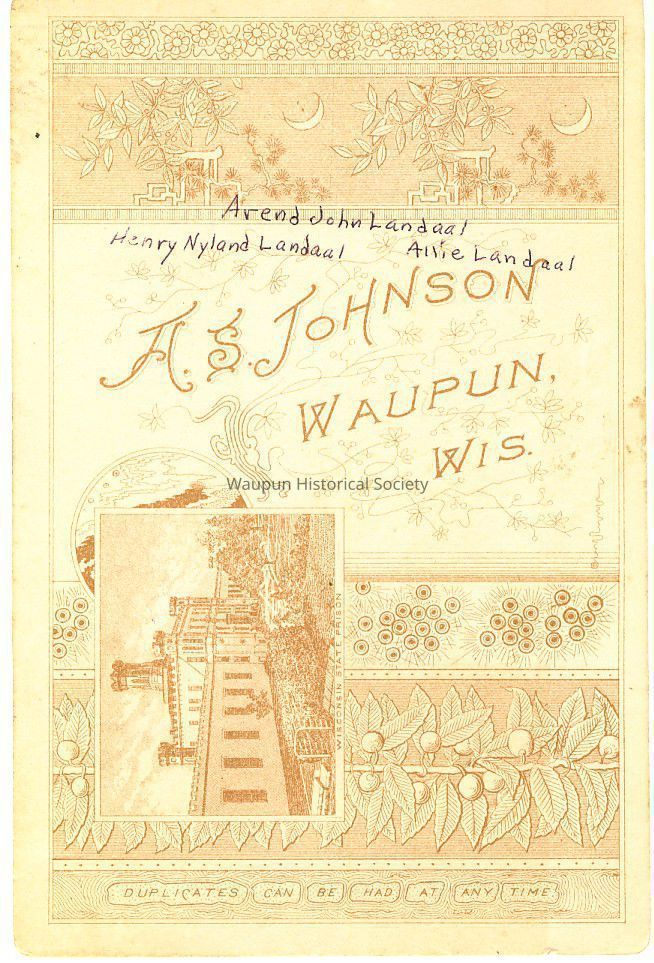 Arend John Landaal
Henry Nyland Landaal Allie Landaal
A. S. JOHNSON
WAUPUN,
WIS.
Waupun Historical Society
WISCONSIN STATE PRISON
DUPLICATES CAN BE HAD AT ANY TIME